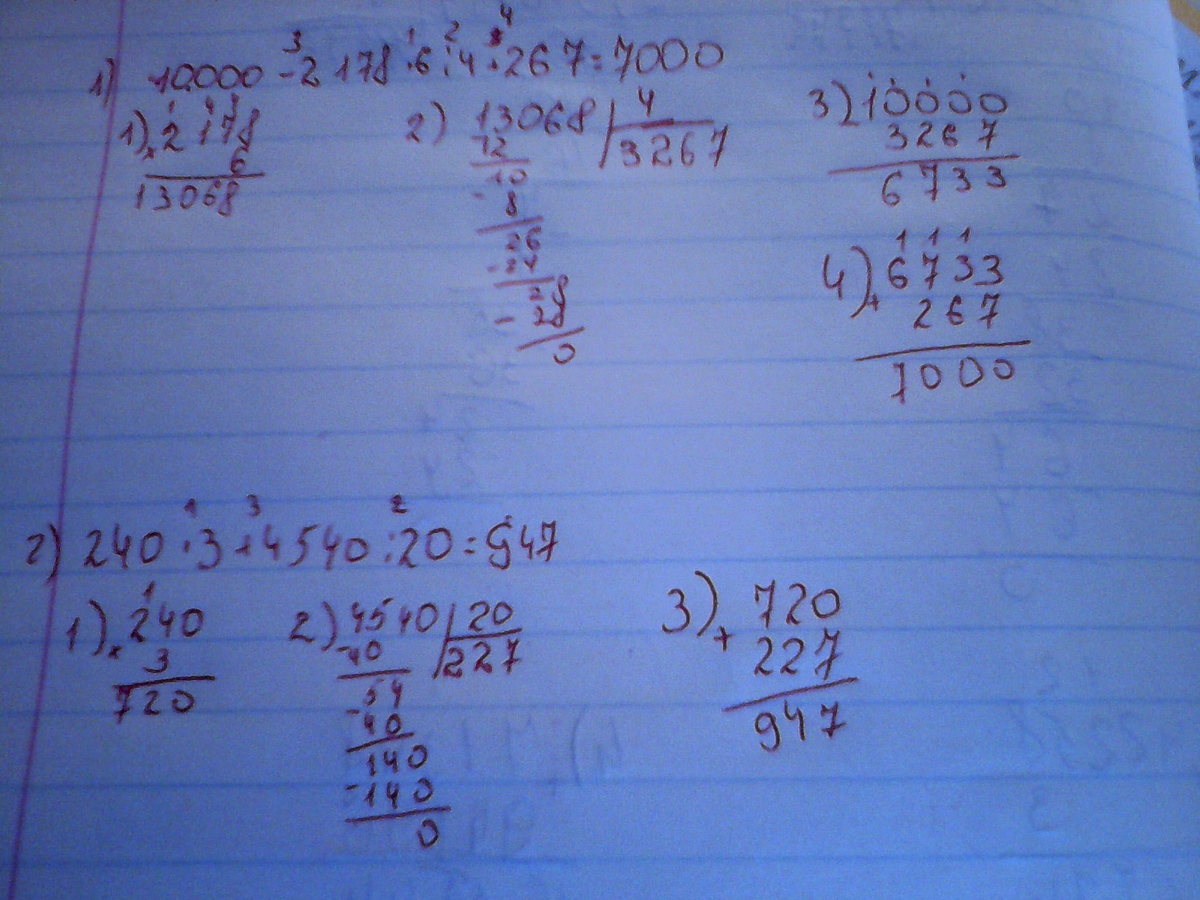 3 1 2 4
1) 10000 - 2178 · 6 : 4 + 267 = 7000
1) 2178
× 6
13068
2) 13068 | 4
3267
12
10
- 8
26
- 24
28
- 28
0
3) 10000
- 3267
6733
1 1 1
4) 6733
+ 267
7000
1 3 2
2) 240 · 3 + 4540 : 20 = 947
1
1) 240
× 3
720
2) 4540 | 20
- 40 227
54
- 40
140
- 140
0
3) 720
+ 227
947